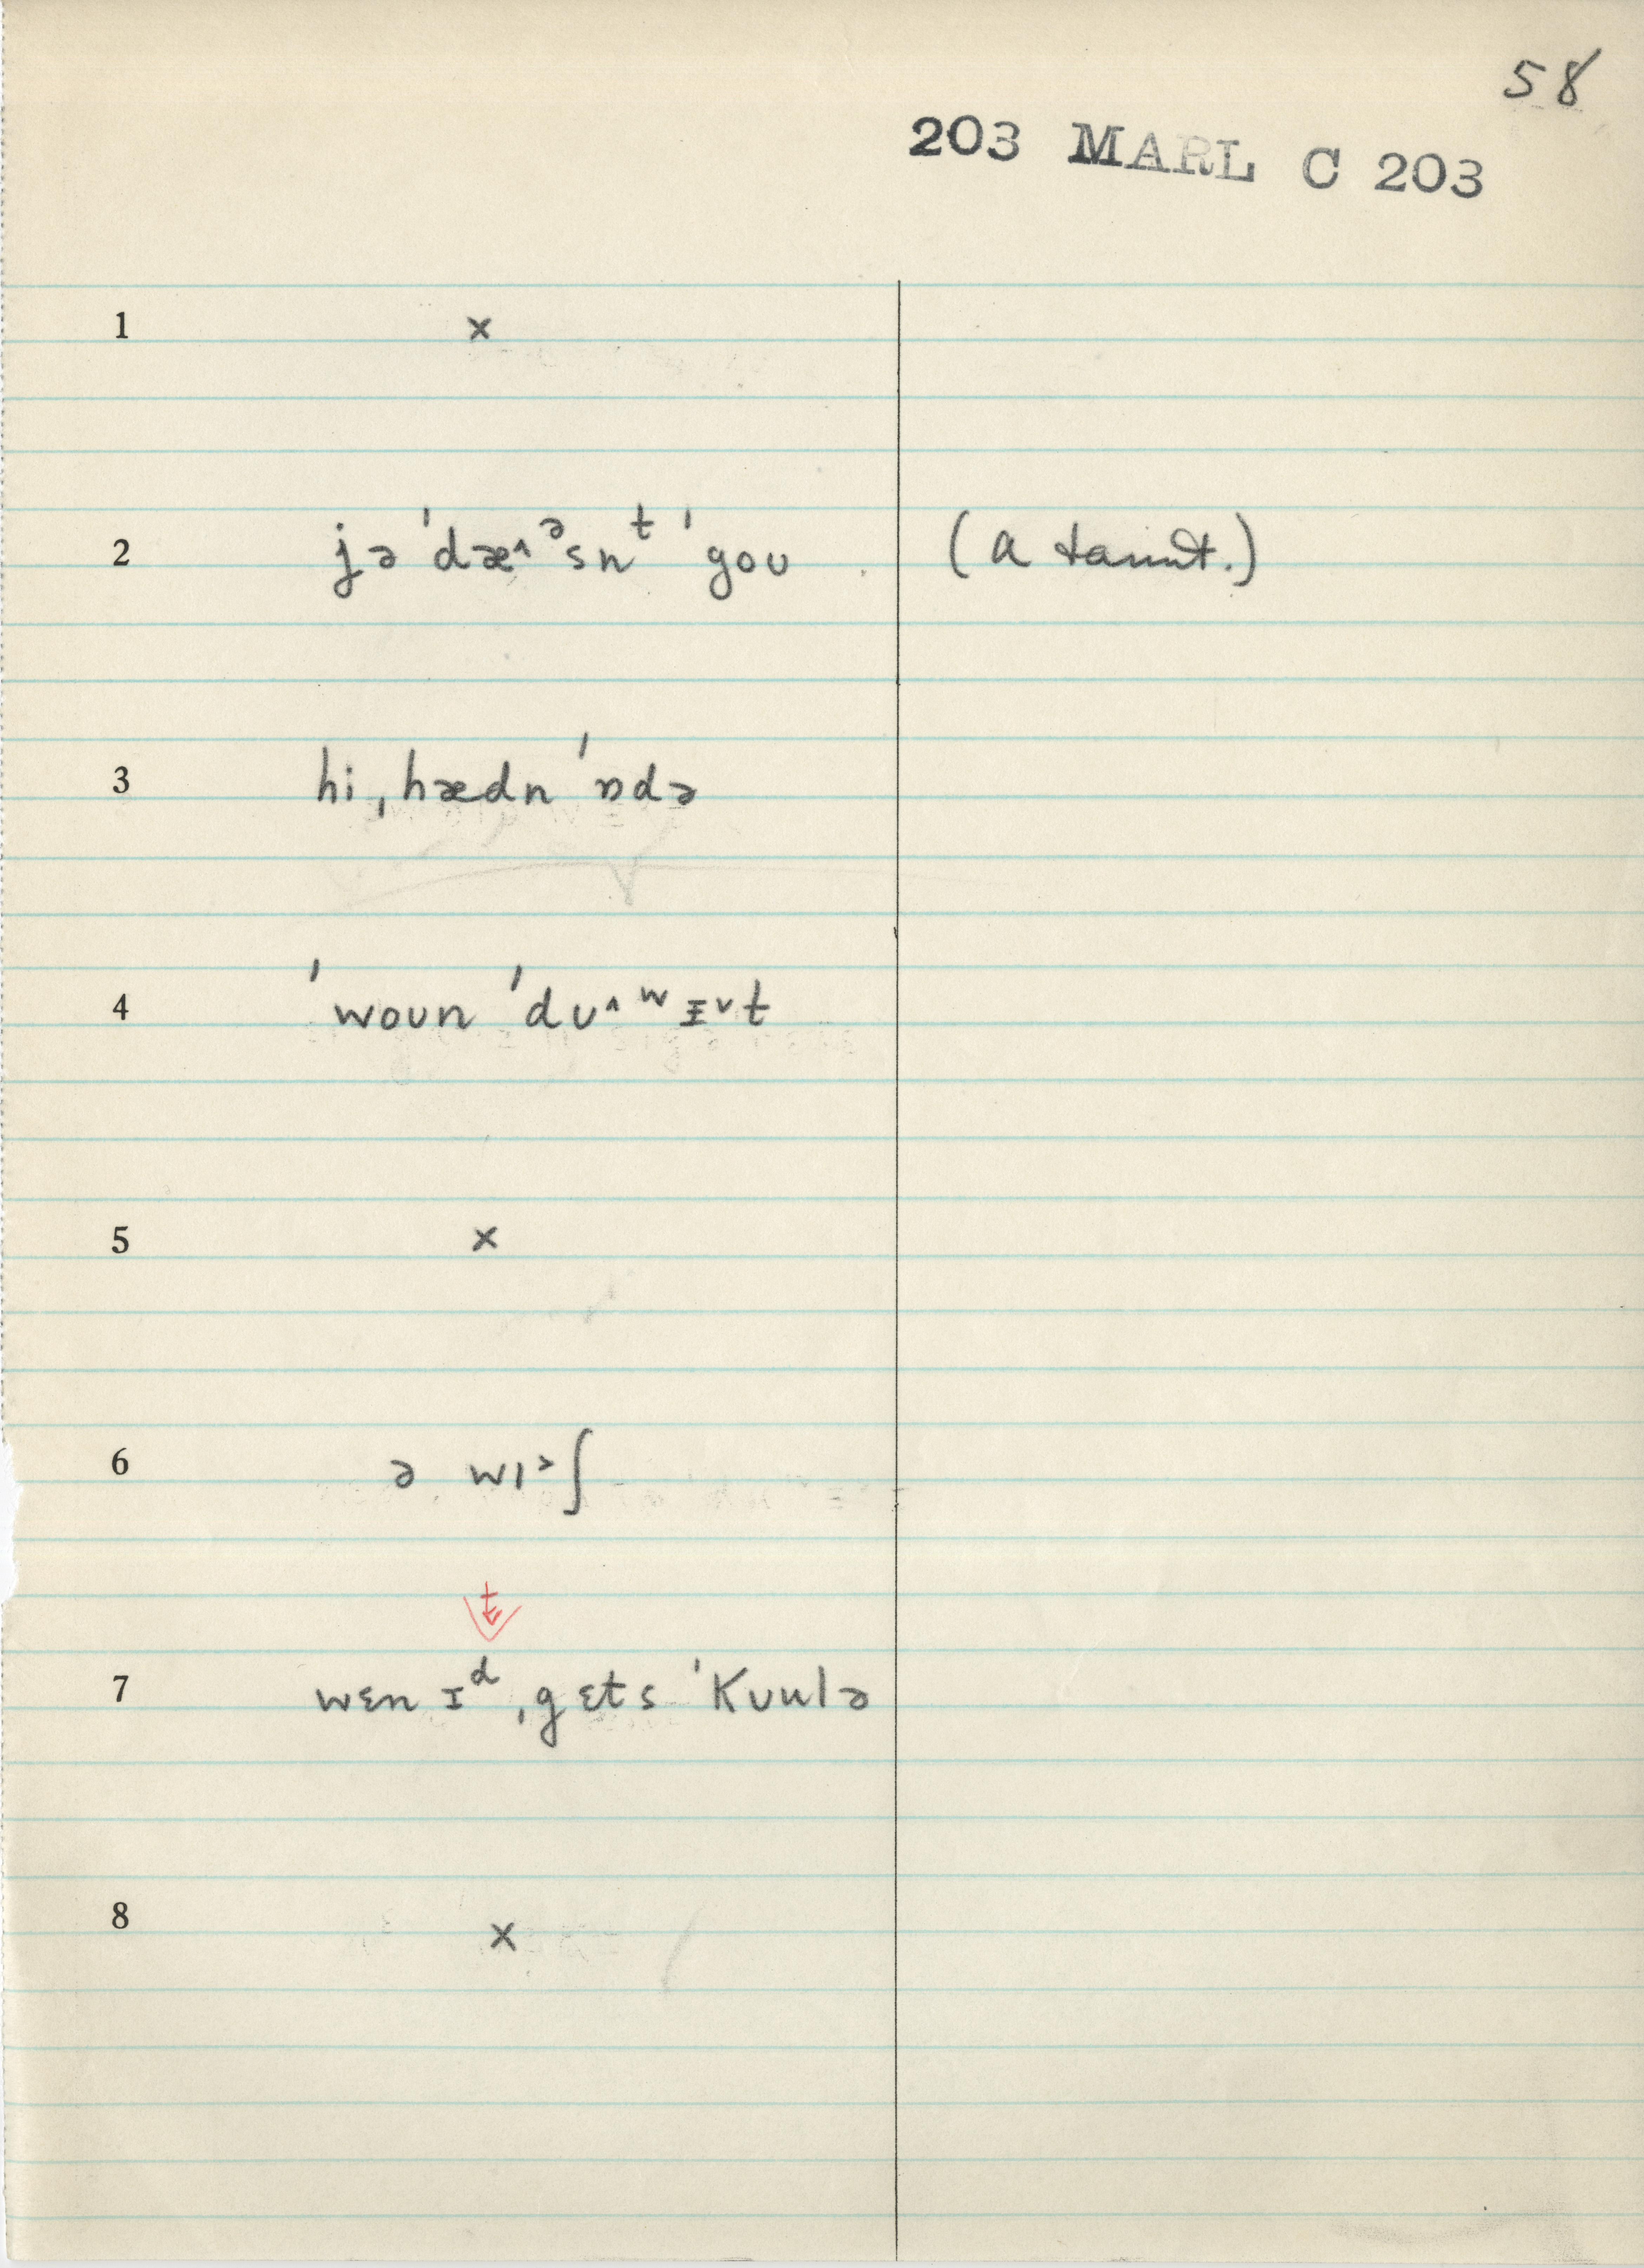 58
203 MARL C 203
1 x
2 jə ˈdæ^ᵊsnᵗ ˈgoʊ (a taunt.)
3 hi ˌhædn ˈɒdə
4 ˈwoʊn ˈdʊ^ʷɪ̵ᵛt
5 x
6 ə wɪ˃ʃ
t
7 wɛn ɪᵈ ˌgɛts ˈkʊulə
8 x